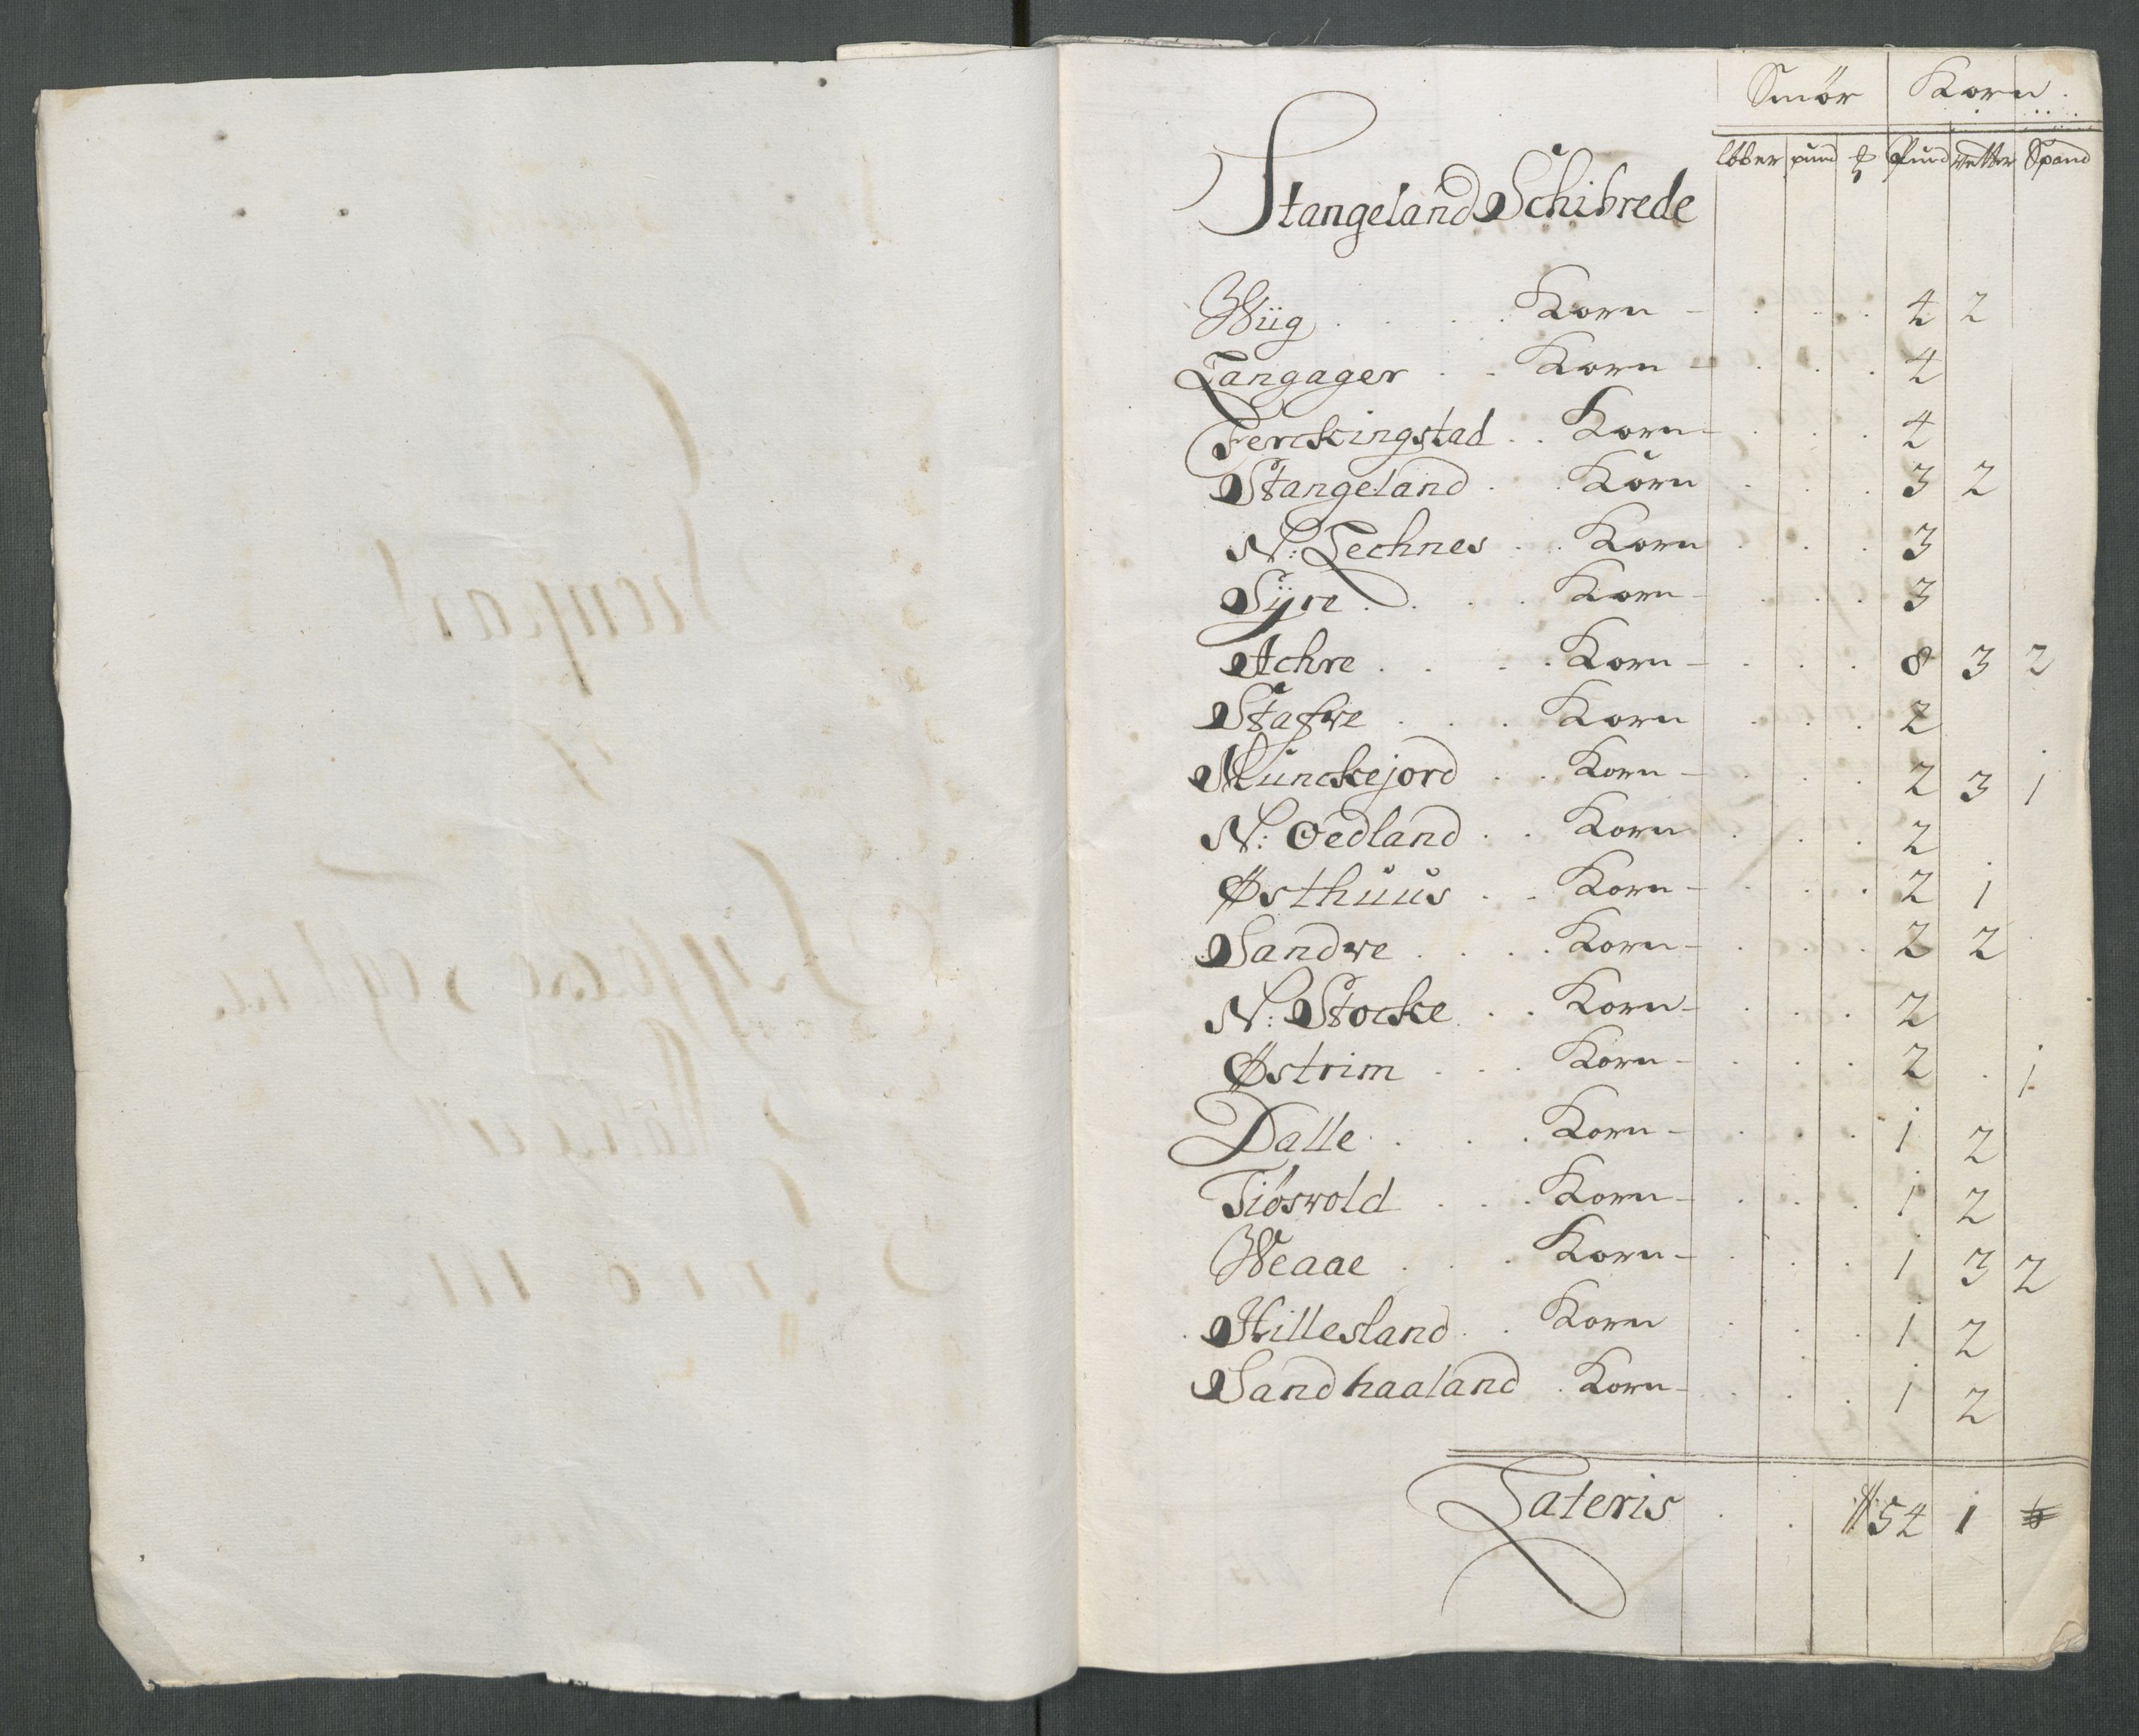 Smör Korn
lòber pund ℔ Pund Vetter Spand
Stangeland Schibrede
Wiig Korn 4 2
Langager Korn 4
Ferckingstad Korn 4
Stangeland Korn 3 2
N: Lechnes Korn 3
Sÿre Korn 3
Achre Korn 8 3 2
Stafve Korn 2
Munckejord Korn 2 3 1
N: Oedland Korn 2
Østhuus Korn 2 1
Sandve Korn 2 2
N: Stocke Korn 2
Østrim Korn 2 . 1
Dalle Korn 1 2
Tiösvold Korn 1 2
Weaae Korn 1 3 2
Hillesland Korn 1 2
Sandhaaland Korn 1 2
Lateris 54 1